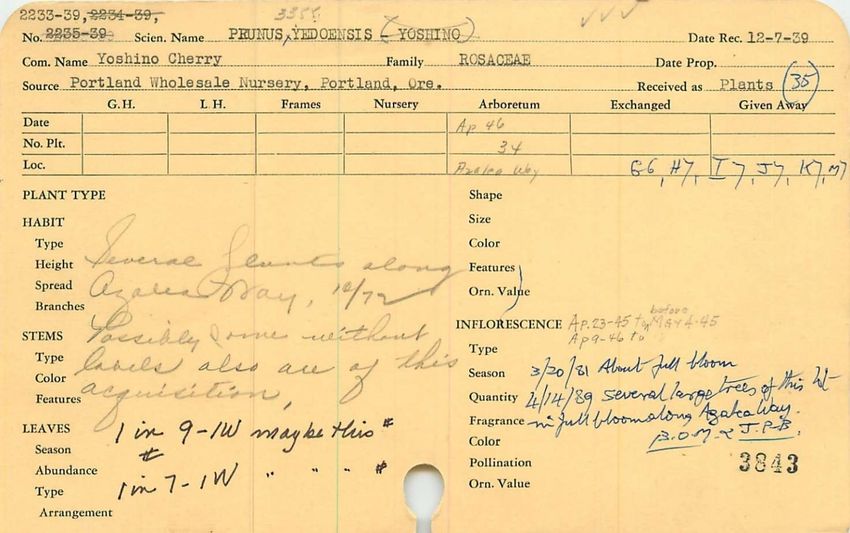 2233-39, 2234-39, 3355
No. 2235-39 Scien. Name PRUNUS YEDOENSIS (YOSHINO) Date Rec. 12-7-39
Com. Name Yoshino Cherry Family ROSACEAE Date Prop.
Source Portland Wholesale Nursery, Portland, Ore. Received as Plants (35)
G.H. L H. Frames Nursery Arboretum Exchanged Given Away
Date Ap 46
No. Plt. 34
Loc. Azalea Way G6, H7, I7, J7, K7, M7
PLANT TYPE
HABIT
Type
Height Several plants along
Spread Azalea Way, 10/72
Branches
STEMS Possibly some without
Type labels also are of this
Color acquisition,
Features
LEAVES 1 in 9-1W maybe this #
Season #
Abundance
Type 1 in 7-1W " " " #
Arrangement
Shape
Size
Color
Features
Orn. Value
before
INFLORESCENCE Ap.23-45 to May 4-45
Ap 9-46 to
Type
Season 3/20/81 About full bloom
Quantity 4/14/89 several large trees of this lot
Fragrance in full bloom along Azalea Way.
Color B.O.M. & J.P.B.
Pollination 3843
Orn. Value